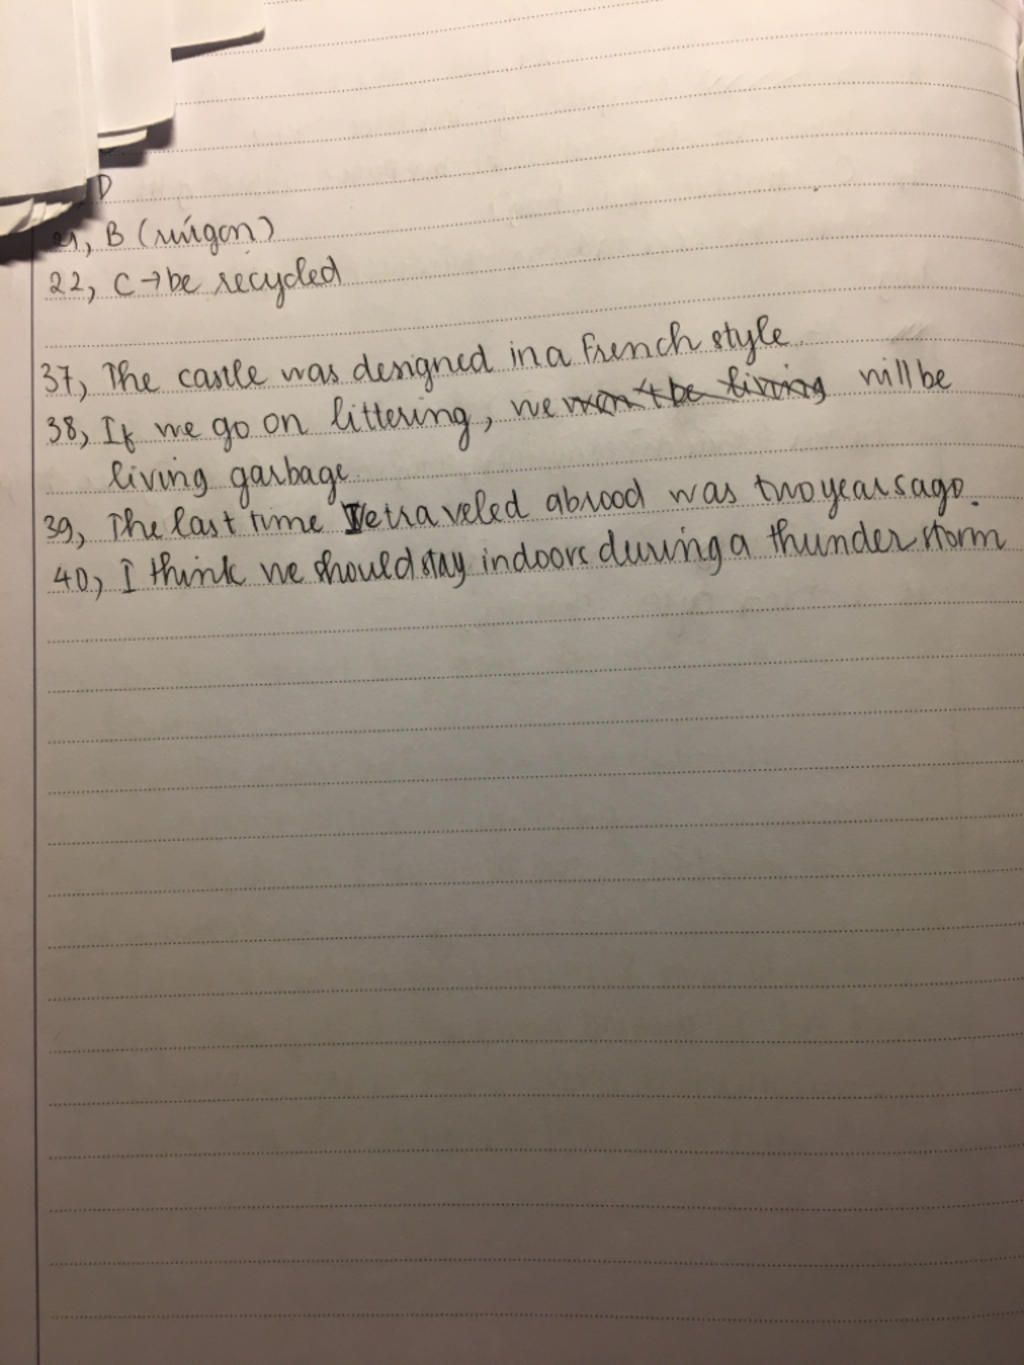 D
21, B (rút gọn)
22, C → be recycled
37, The castle was designed in a French style.
38, If we go on littering, we won't be living will be
living garbage.
39, The last time I traveled abroad was two years ago.
40, I think we should stay indoors during a thunder storm